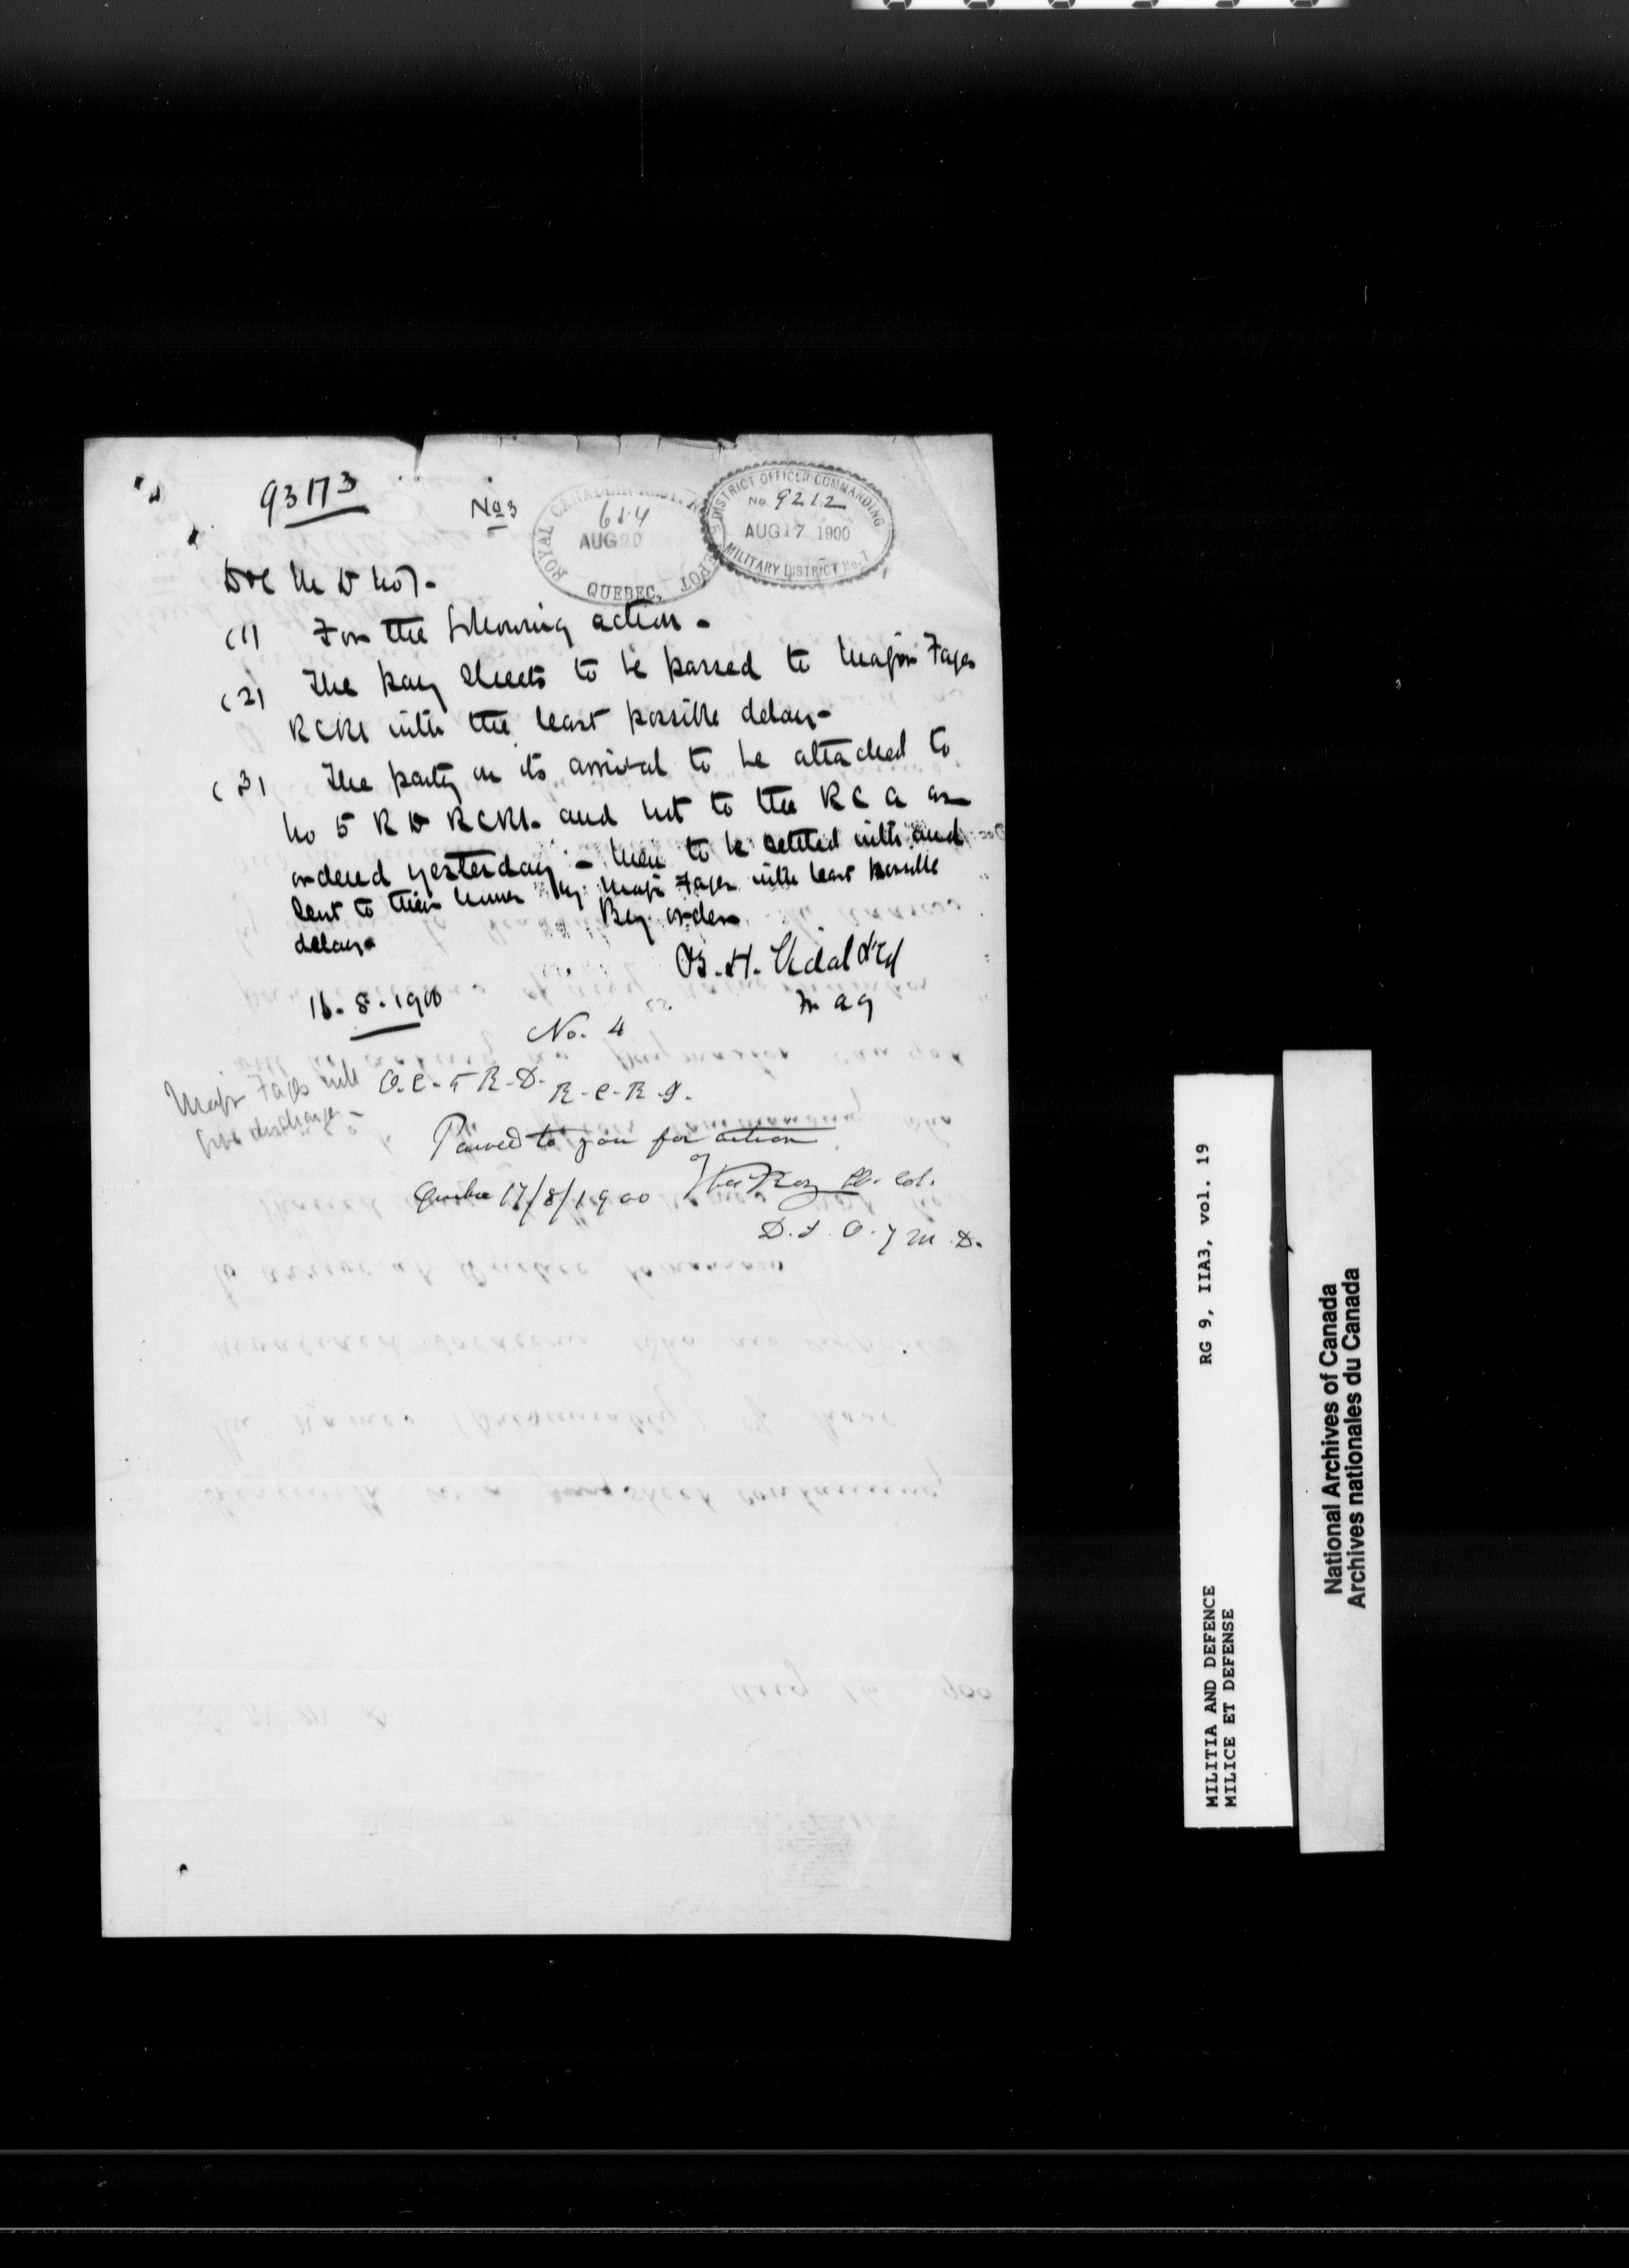 93173
No 3
ROYAL CANADIAN REGT.
614
AUG 20
DEPOT
QUEBEC.
DISTRICT OFFICER COMMANDING
No. 9212
AUG 17 1900
MILITARY DISTRICT No. 7
DOC M D No 7 -
(1) For the following action -
(2) The pay sheets to be passed to Major Fages
RCRI with the least possible delay -
(3) The party on its arrival to be attached to
No 5 R D RCRI. and not to the R C A as
ordered yesterday - Men to be settled with and
sent to their homes by Major Fages with least possible
delay.
By order
B. H. Vidal
16. 8. 1900
No. 4
Major Fages will
discharge -
O.C. 5 R.D. R.C.R.I.
Passed to you for action
Quebec 17/8/1900
Roy Lt. Col.
D.O.C. 7 M.D.
RG 9, IIA3, vol. 19
MILITIA AND DEFENCE
MILICE ET DEFENSE
National Archives of Canada
Archives nationales du Canada